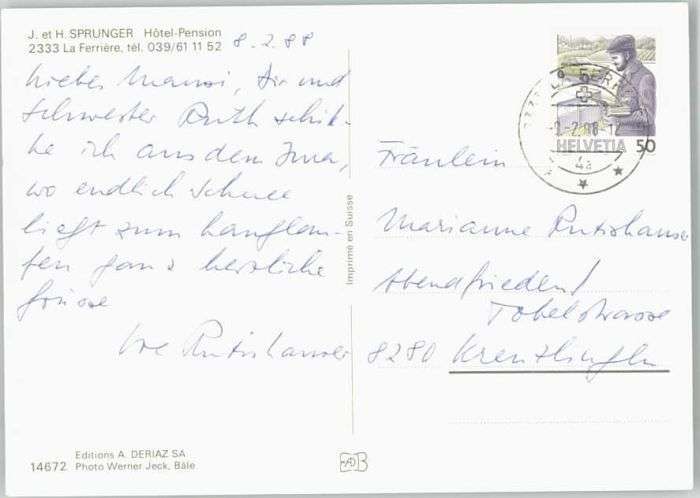 J. et H. SPRUNGER Hôtel-Pension
2333 La Ferrière, tél. 039/61 11 52
8.2.88
Dir und
Schwester Ruth schik-
ke ich aus dem Jura,
wo endlich Schnee
liegt zum Langlau-
fen ganz herzliche
Grüsse
Rutishauser
Imprimé en Suisse
LA FERR
HELVETIA 50
Fräulein
Marianne Rutishauser
Abendfrieden
Tobelstrasse
8280 Kreuzlingen
Editions A. DERIAZ SA
14672 Photo Werner Jeck, Bâle